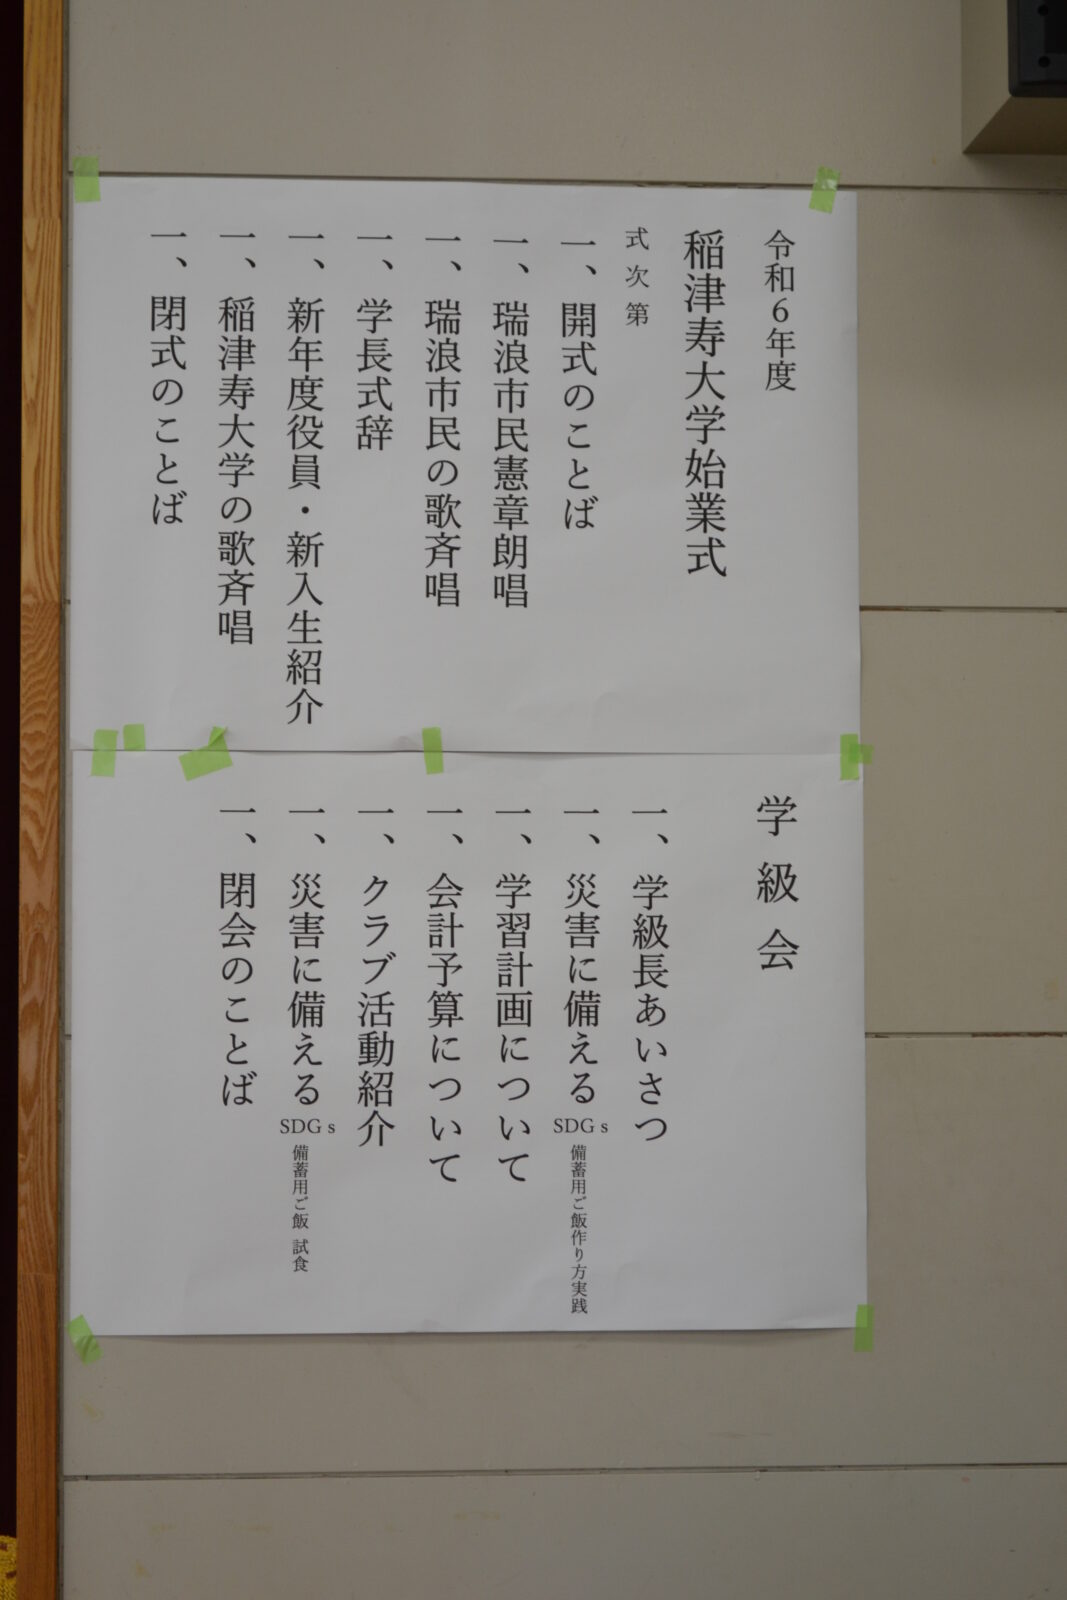 令和6年度
稲津寿大学始業式
式次第
一、開式のことば
一、瑞浪市民憲章朗唱
一、瑞浪市民の歌斉唱
一、学長式辞
一、新年度役員・新入生紹介
一、稲津寿大学の歌斉唱
一、閉式のことば
学級会
一、学級長あいさつ
一、災害に備える SDGs 備蓄用ご飯作り方実践
一、学習計画について
一、会計予算について
一、クラブ活動紹介
一、災害に備える SDGs 備蓄用ご飯 試食
一、閉会のことば